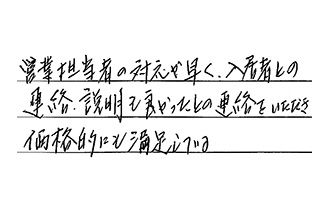 営業担当者の対応が早く、入居者との
連絡、説明も良かったとの連絡をいただき
価格的にも満足している